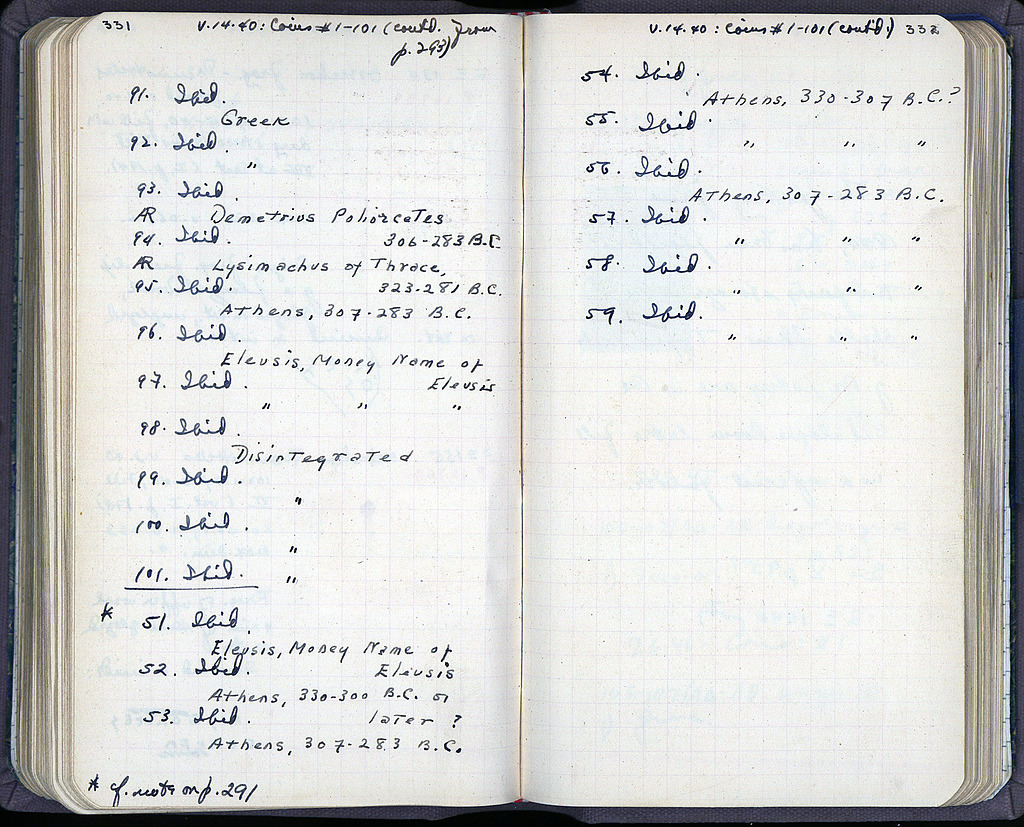 331 V.14.40: Coins #1-101 (contd. from
p. 293)
91. Ibid.
Greek
92. Ibid.
"
93. Ibid.
AR Demetrius Poliorcetes
94. Ibid. 306-283 B.C.
AR Lysimachus of Thrace,
95. Ibid. 323-281 B.C.
Athens, 307-283 B.C.
96. Ibid.
Eleusis, Money Name of
97. Ibid. Eleusis
" " "
98. Ibid.
Disintegrated
99. Ibid.
"
100. Ibid.
"
101. Ibid. "
* 51. Ibid.
Eleusis, Money Name of
52. Ibid. Eleusis
Athens, 330-300 B.C. or
53. Ibid. later ?
Athens, 307-283 B.C.
* cf. note on p. 291
V.14.40: Coins #1-101 (contd.) 332
54. Ibid.
Athens, 330-307 B.C.?
55. Ibid.
" " "
56. Ibid.
Athens, 307-283 B.C.
57. Ibid.
" " "
58. Ibid.
" " "
59. Ibid.
" " "